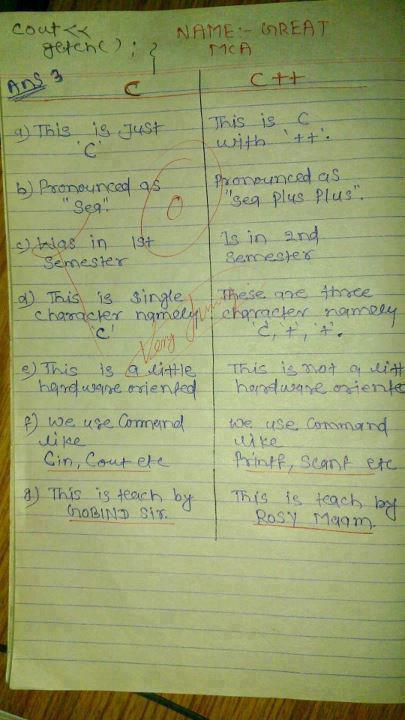 cout<<
getch(); }
NAME:- GREAT
MCA
Ans 3
C
C++
a) This is Just
'C'
This is C
with '++'.
b) Pronounced as
"Sea".
Pronounced as
"Sea Plus Plus".
0
c) Was in 1st
Semester
Is in 2nd
Semester
d) This is single
character namely
'C'
These are three
character namely
'C, +, +'.
Very Funny
e) This is a little
hardware oriented
This is not a litt
hardware oriente
f) We use Command
like
Cin, Cout etc
We use Command
like
Printf, Scanf etc
g) This is teach by
GOBIND Sir.
This is teach by
ROSY Maam.